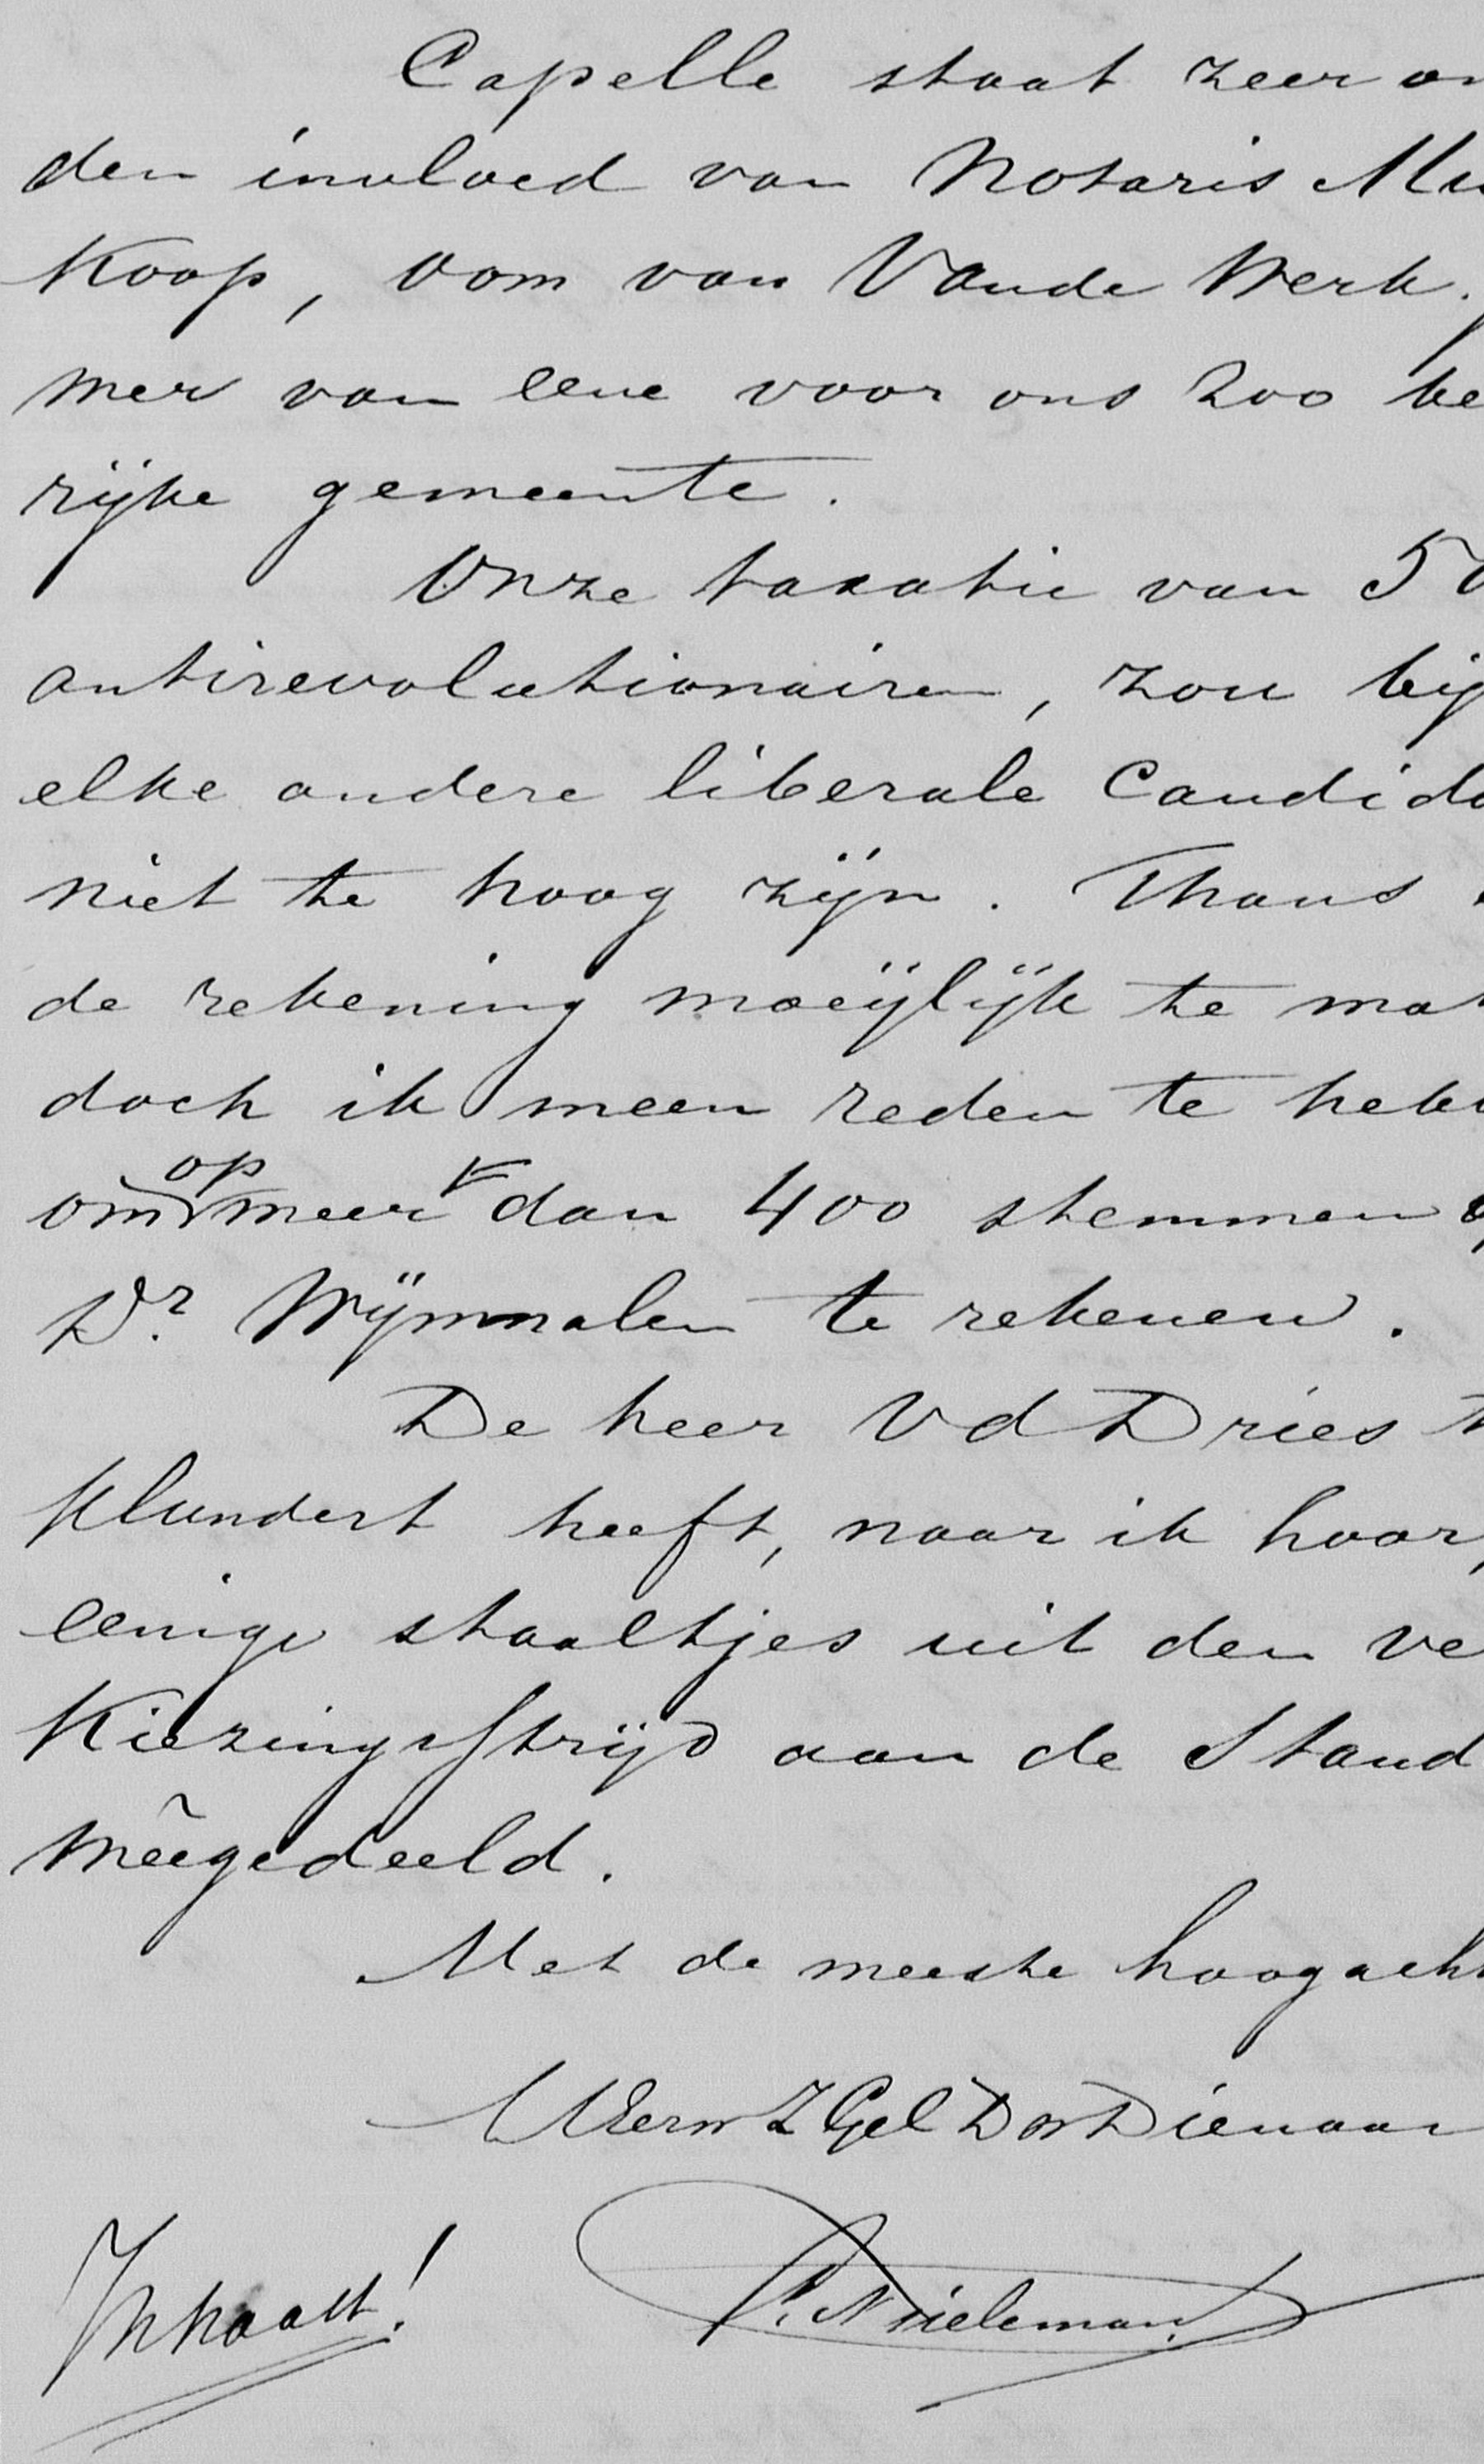 Capelle staat zeer on
den invloed van Notaris Mu
Koop, oom van Vande Werk.
mer van eene voor ons zoo be
rijke gemeente.
Onze taxatie van 50
antirevolutionairen, zou bij
elke andere liberale Candida
niet te hoog zijn. Thans
de rekening moeijlijk te mak
doch ik meen reden te hebb
om op meer dan 400 stemmen
Dr. Wijnmalen te rekenen.
De heer Vd Dries
Klundert heeft, naar ik hoor,
eenige staaltjes uit den ve
Kiezingsstrijd aan de Stand
mêegedeeld.
Met de meeste hoogacht
UwEern ZGel Dw Dienaar
P. Nieleman